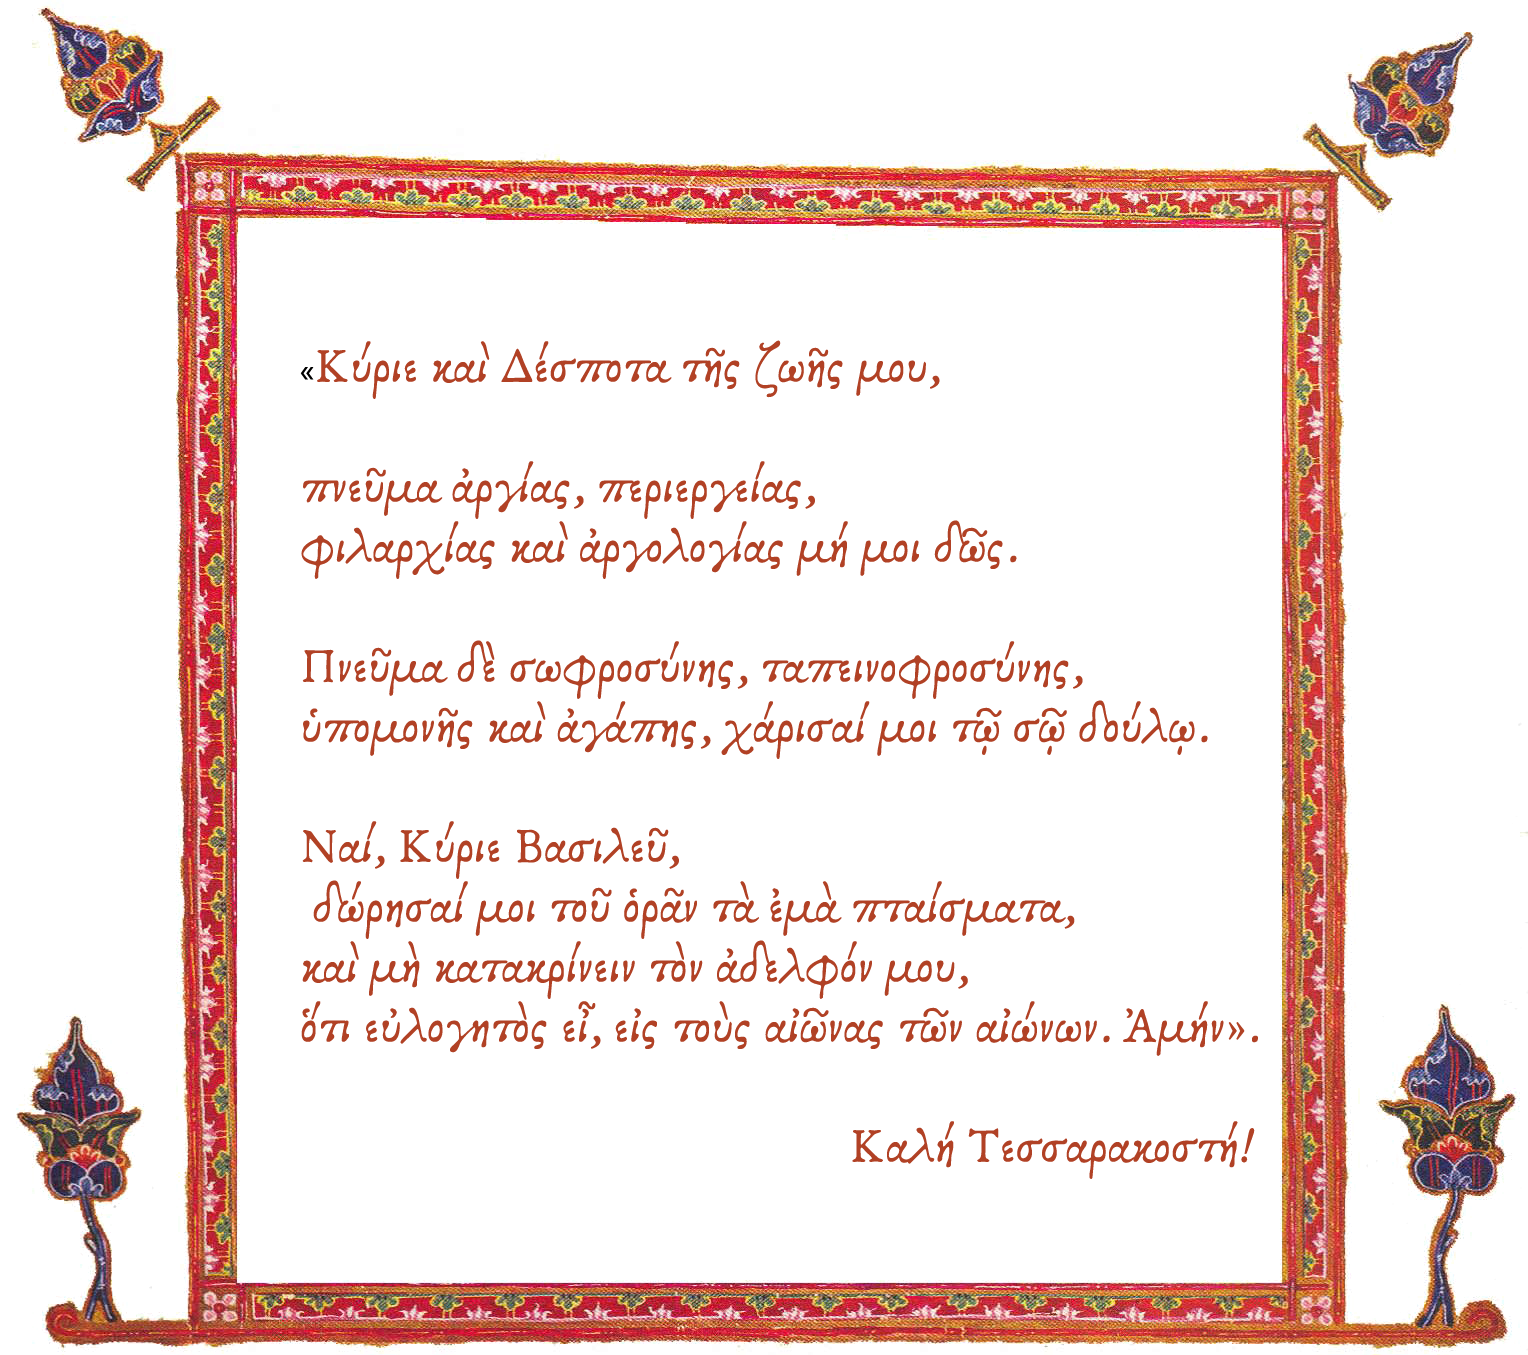 «Κύριε καὶ Δέσποτα τῆς ζωῆς μου,
πνεῦμα ἀργίας, περιεργείας,
φιλαρχίας καὶ ἀργολογίας μή μοι δῶς.
Πνεῦμα δὲ σωφροσύνης, ταπεινοφροσύνης,
ὑπομονῆς καὶ ἀγάπης, χάρισαί μοι τῷ σῷ δούλῳ.
Ναί, Κύριε Βασιλεῦ,
δώρησαί μοι τοῦ ὁρᾶν τὰ ἐμὰ πταίσματα,
καὶ μὴ κατακρίνειν τὸν ἀδελφόν μου,
ὅτι εὐλογητὸς εἶ, εἰς τοὺς αἰῶνας τῶν αἰώνων. Ἀμήν».
Καλή Τεσσαρακοστή!